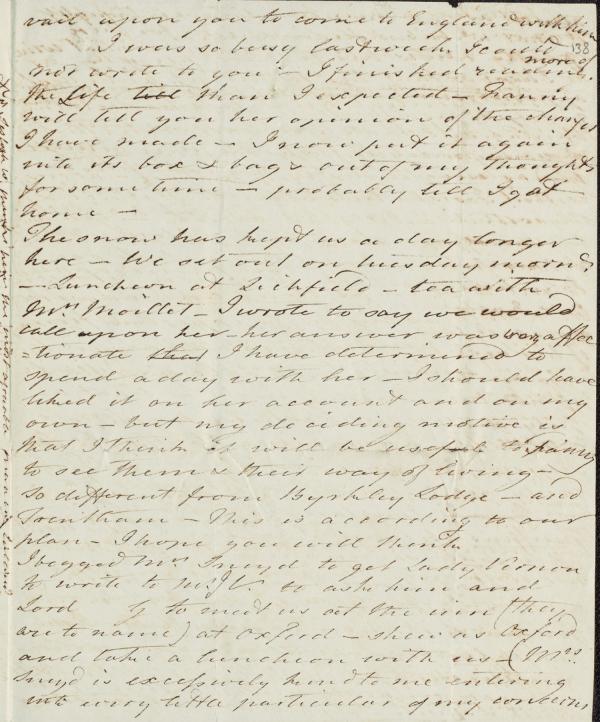 vail upon you to come to England with him
I was so busy last week I could
138
not write to you – I finished reading
more of
the Life till than I expected – Fanny
will tell you her opinion of the changes
I have made – I now put it again
into its box & bags out of my thoughts
for some time – probably till I get
home –
The snow has kept us a day longer
here – We set out on tuesday morng
– Luncheon at Lichfield – tea with
Mrs Moillet – I wrote to say we would
call upon her – her answer was very affec
=tionate that I have determined to
spend a day with her – I should have
liked it on her account and on my
own – but my deciding motive is
that I think it will be useful to Fanny
to see them & their way of living –
so different from Byrkley Lodge – and
Trentham – This is according to our
plan – I hope you will think
I begged Mrs Sneyd to get Lady Vernon
to write to Mr V. to ask him and
Lord to meet us at the inn (they
are to name) at Oxford – shew us Oxford
and take a luncheon with us – (Mrs
Sneyd is excessively kind to me entering
into every little particular of my concerns